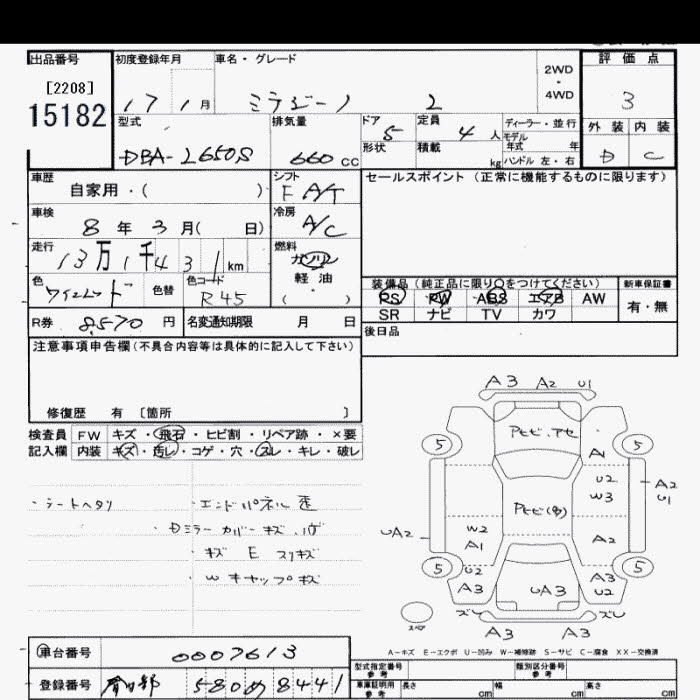 出品番号 初度登録年月 車名・グレード 2WD・4WD 評価点
[2208]
15182
17 1月 ミラジーノ 2 3
型式 排気量 ドア 5 定員 4人 ディーラー・並行 外装 内装
モデル年式 年
DBA-L650S 660cc 形状 積載 kg ハンドル 左・右 D C
車歴 自家用・( ) シフト F A/T セールスポイント(正常に機能するものに限ります)
車検 8年3月( 日) 冷房 A/C
走行 13万1千431km 燃料 ガソリン
軽油
( )
色 ワインレッド 色替 色コード R45
装備品(純正品に限り○をつけてください) 新車保証書
PS PW ABS エアB AW 有・無
SR ナビ TV カワ
R券 8,570円 名変通知期限 月 日 後日品
注意事項申告欄(不具合内容等は具体的に記入して下さい)
修復歴 有 〔箇所 〕
検査員 FW キズ・飛石・ヒビ割・リペア跡・×要
記入欄 内装 キズ・汚レ・コゲ・穴・スレ・キレ・破レ
・シートヘタリ ・エンドパネル歪
・Dミラーカバーキズ
・キズ E スリキズ
・Wキャップキズ
A3 A2 U1
5 5
A1
U2
W3
A2
U1
UA2
W2
A1
A2
5 5
U2
A3
UA3
A3
U2
ズレ ズレ
A3 A3
スペア
A-キズ E-エクボ U-凹み W-補修跡 S-サビ C-腐食 XX-交換済
車台番号 0007613
登録番号 春日部 580 め 8441
型式指定番号 参考 類別区分番号 参考
車庫証明用 参考 長さ cm 幅 cm 高さ cm